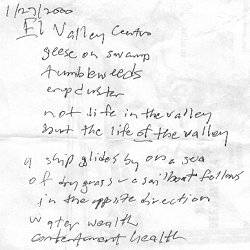 1/27/2000
El Valley Centro
geese on swamp
tumbleweeds
crop duster
not life in the valley
but the life of the valley
a ship glides by on a sea
of dry grass a sailboat follows
in the opposite direction
water wealth
contentment health